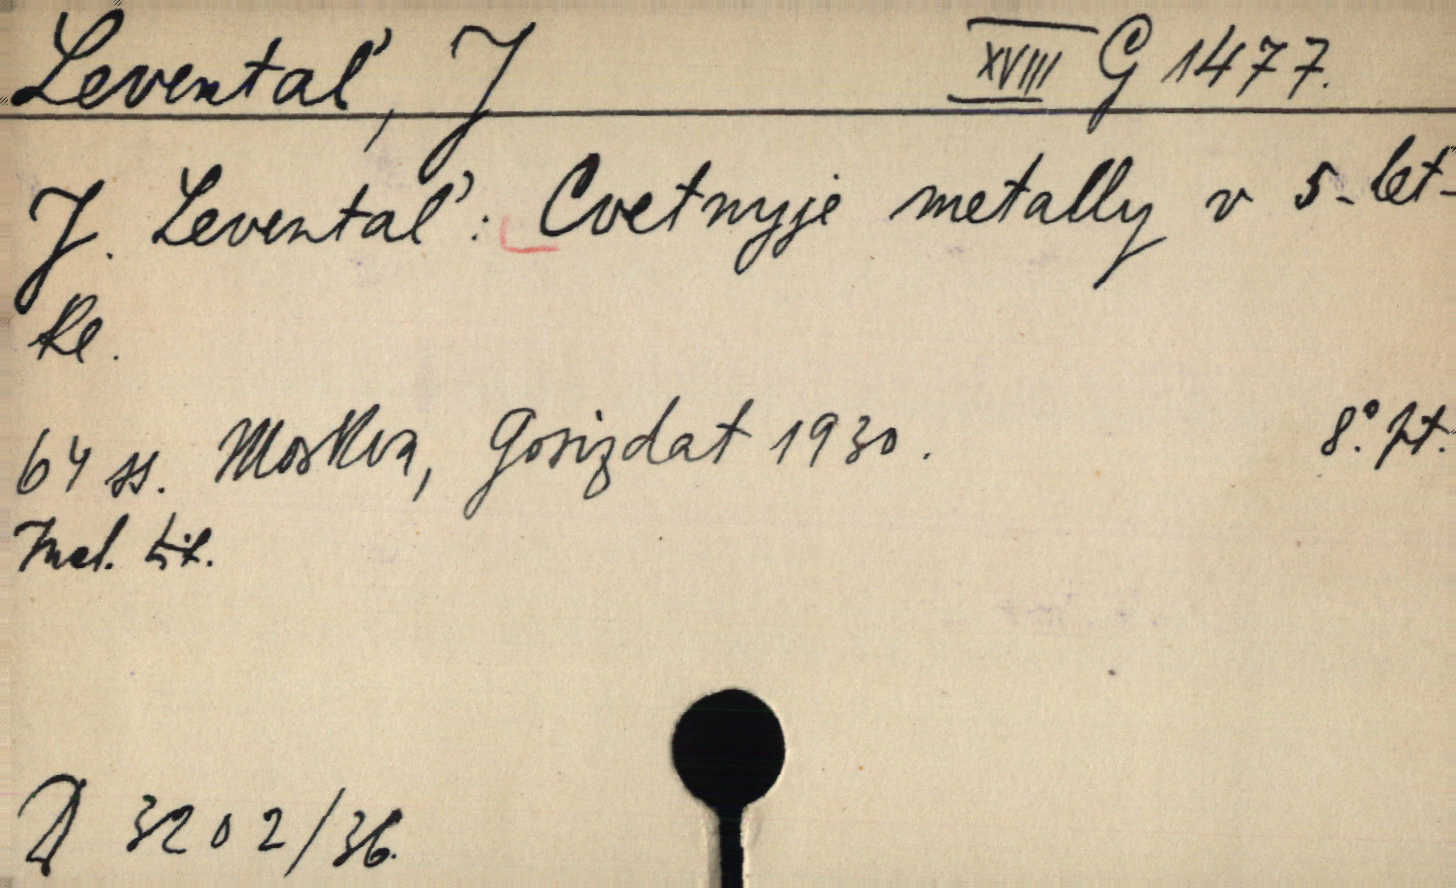 Levental', J XVIII G 1477.
J. Levental': Cvetnyje metally v 5-let-
ke.
64 ss. Moskva, Gosizdat 1930. 8°.
lit.
D 3202/36.